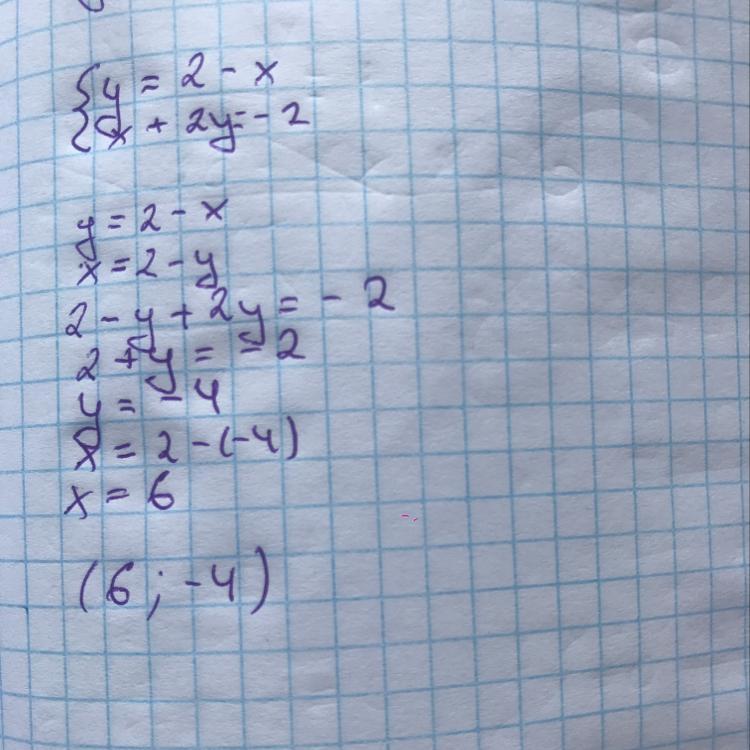 {y = 2 - x
x + 2y = -2
y = 2 - x
x = 2 - y
2 - y + 2y = -2
2 + y = -2
y = -4
x = 2 - (-4)
x = 6
(6; -4)